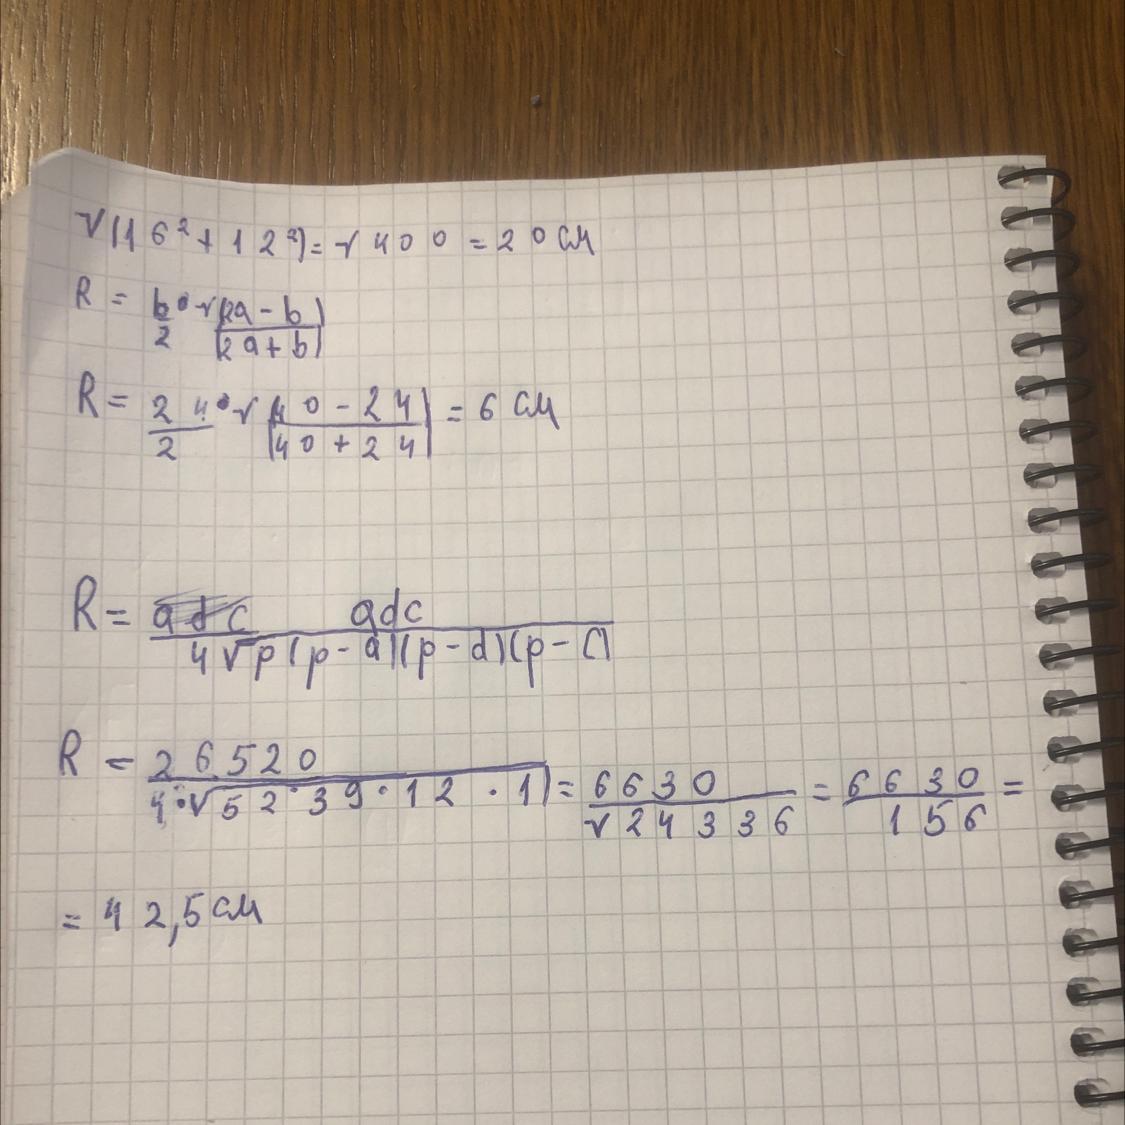 √(16²+12²)=√400=20см
R = b/2 · √(2a-b)/(2a+b)
R = 24/2 · √(40-24)/(40+24) = 6 см
R = adc/4√p(p-a)(p-d)(p-c)
R = 26520/4·√52·39·12·1) = 6630/√24336 = 6630/156 =
= 42,5 см